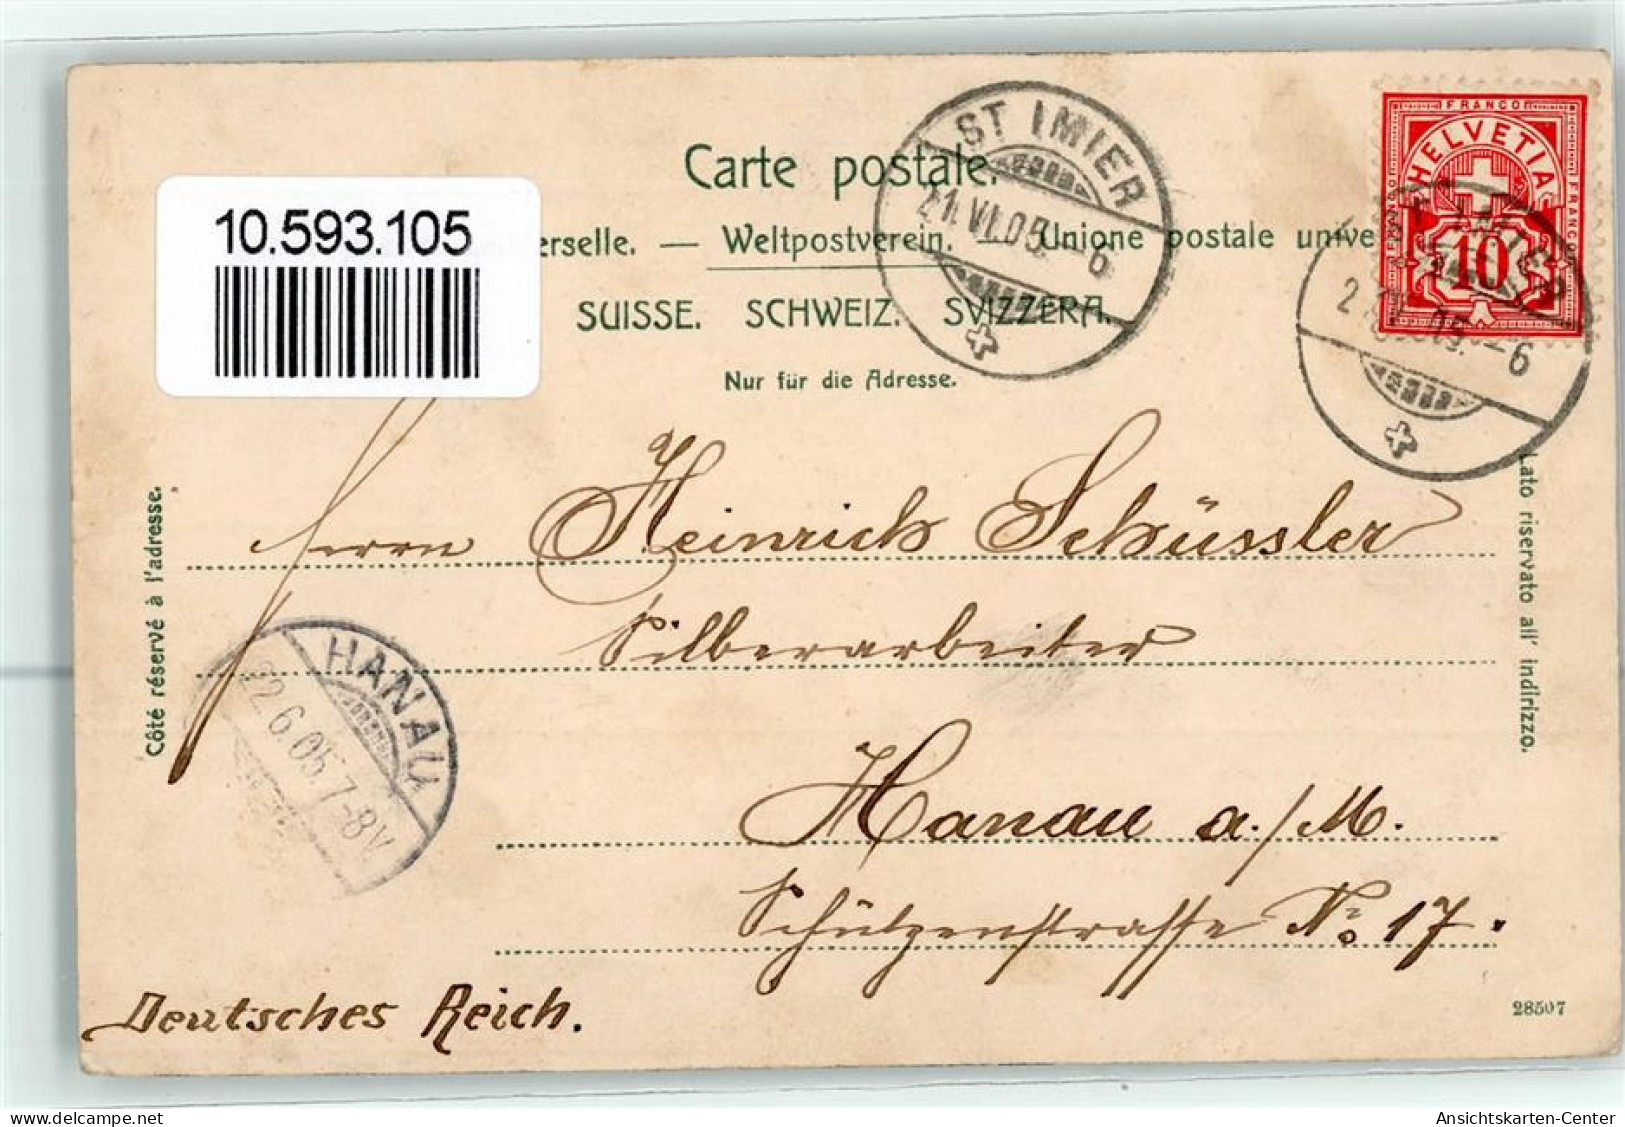 10.593.105
Carte postale.
erselle. — Weltpostverein. — Unione postale unive
SUISSE. SCHWEIZ. SVIZZERA.
Nur für die Adresse.
ST IMIER
21.VI.05.-6
FRANCO
HELVETIA
FRANCO
FRANCO
10
ST IMIER
05.-6
Côté réservé à l'adresse.
Lato riservato all' indirizzo.
Herrn Heinrich Schüssler
Silberarbeiter
HANAU
22.6.05.7-8V
Hanau a./M.
Schützenstrasse No 17.
Deutsches Reich.
28507
oldthing.de
Ansichtskarten-Center